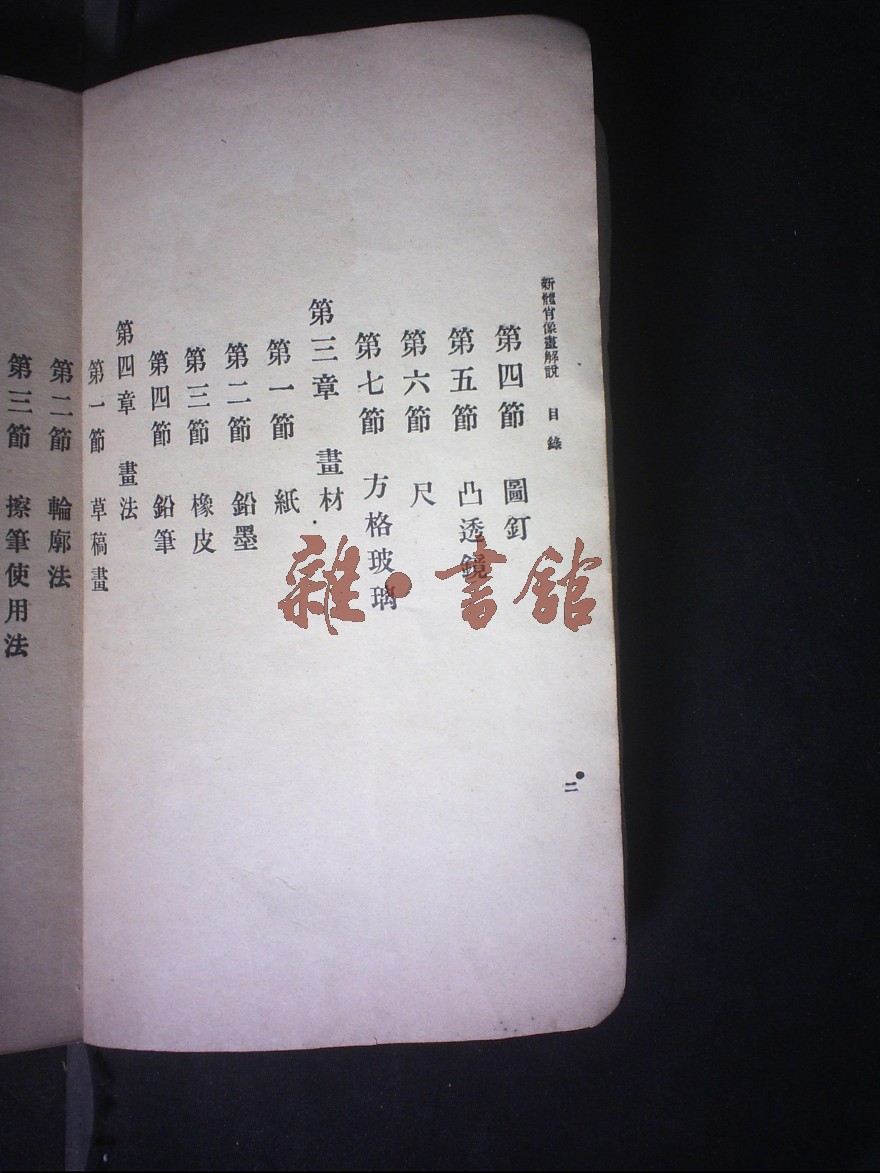 新體肖像畫解說　目錄
第四節　圖釘
第五節　凸透鏡
第六節　尺
第七節　方格玻璃
第三章　畫材
第一節　紙
第二節　鉛墨
第三節　橡皮
第四節　鉛筆
第四章　畫法
第一節　草稿畫
第二節　輪廓法
第三節　擦筆使用法
二
雜·書館